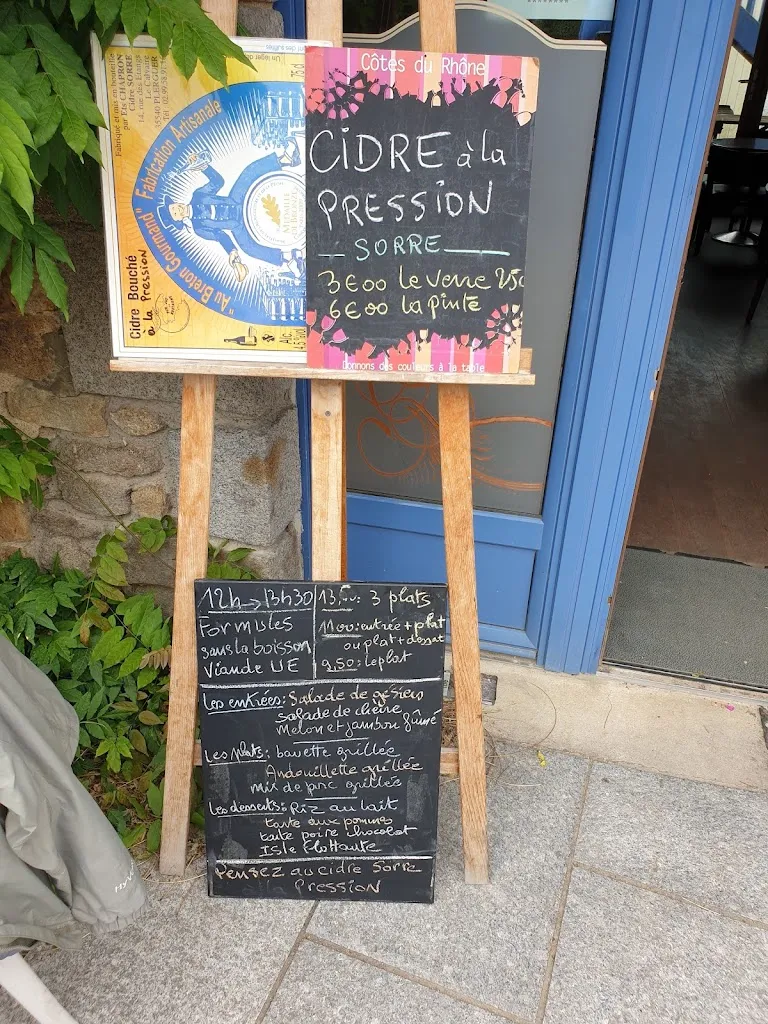 Fabriqué et mis en bouteille
par Ets CHAPRON
Cidre SORRE
14, rue des Étangs
Le Calvaire
35540 PLERGUER
75 cl
"Au Breton Gourmand" Fabrication Artisanale
Cidre Bouché
à la Pression
Alc.
Côtes du Rhône
CIDRE à la
PRESSION
SORRE
3€00 le verre 25c
6€00 la pinte
Donnons des couleurs à la table
12h→13h30
Formules
sans la boisson
Viande UE
13,50: 3 plats
11.00: entrée + plat
ou plat + dessert
9.50: le plat
Les entrées: Salade de gésiers
salade de chèvre
Melon et jambon fûmé
Les plats: bavette grillée
Andouillette grillée
mix de porc grillés
Les desserts: Riz au lait
tarte aux pommes
tarte poire chocolat
Isle flottante
Pensez au cidre Sorre
Pression